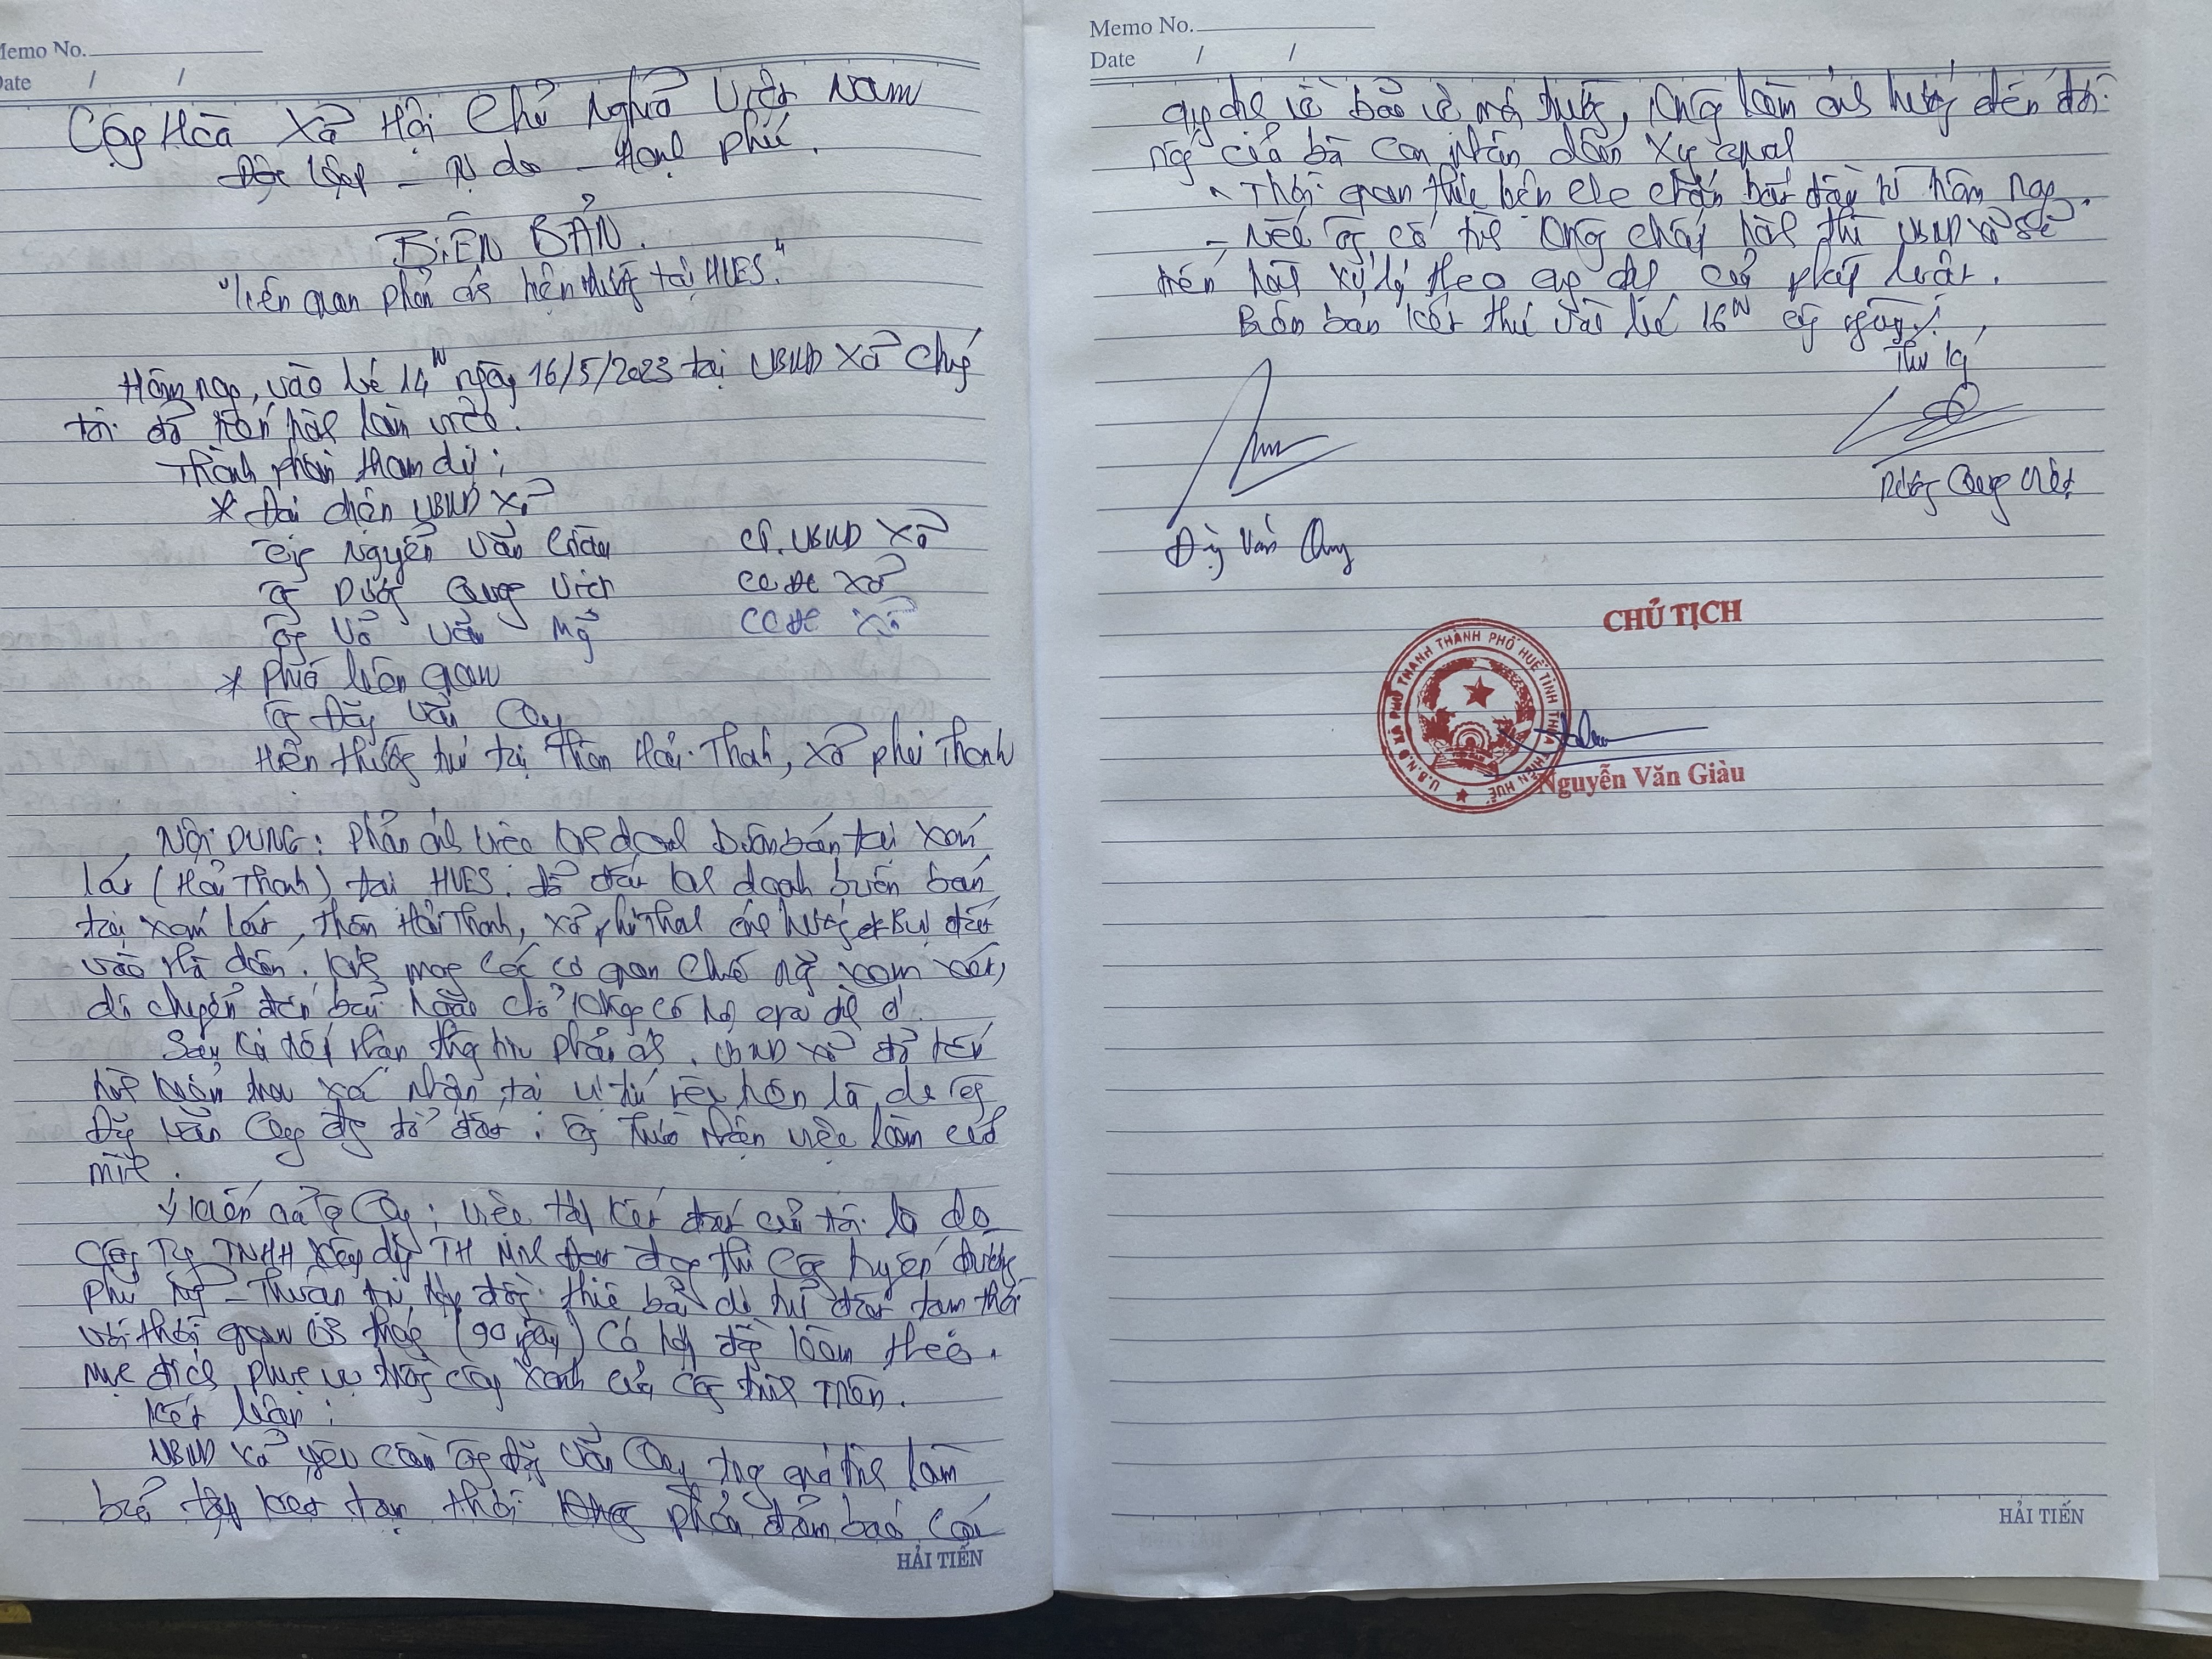 Memo No.
Date / /
Cộng Hòa Xã Hội Chủ Nghĩa Việt Nam
Độc lập - Tự do - Hạnh phúc.
BIÊN BẢN.
"Liên quan phản ánh hiện trường tại HUES."
Hôm nay, vào lúc 14h ngày 16/5/2023 tại UBND Xã Chúng
tôi đã tiến hành làm việc.
Thành phần tham dự:
* Đại diện UBND Xã
Ông Nguyễn Văn Giàu CT. UBND Xã
Ông Dương Quang Việt CCĐC Xã
Ông Võ Văn Mỹ CCĐC Xã
* Phía liên quan
Ông Đặng Văn
Hiện thường trú tại Thôn Hải Thanh, xã Phú Thanh
NỘI DUNG: Phản ánh việc kinh doanh buôn bán tại xóm
(Hải Thanh) tại HUES: đổ đất kinh doanh buôn bán
tại xóm, thôn Hải Thanh, xã Phú Thanh ảnh hưởng bụi đất
vào nhà dân. Kính mong các cơ quan chức năng xem xét,
di chuyển đến bãi hoặc chỗ không có hộ gia đình ở.
Sau khi tiếp nhận thông tin phản ánh. UBND xã đã tiến
hành kiểm tra xác nhận tại vị trí trên là do ông
Đặng Văn đổ đất. Ông thừa nhận việc làm của
mình.
Ý kiến của ông: việc tập kết đất của tôi là do
Công Ty TNHH Xây dựng TH thi công tuyến đường
Phú Mỹ - Thuận An hợp đồng thuê bãi để trữ đất tạm thời
với thời gian 03 tháng (90 ngày) có hợp đồng kèm theo.
Mục đích phục vụ trồng cây xanh của công trình trên.
Kết luận:
UBND xã yêu cầu ông Đặng Văn trong quá trình làm
bãi tập kết tạm thời phải đảm bảo các
HẢI TIẾN
Memo No.
Date / /
quy định về bảo vệ môi trường, không làm ảnh hưởng đến đời
sống của bà con nhân dân xung quanh
- Thời gian che chắn bắt đầu từ hôm nay.
- Nếu ông cố tình không chấp hành thì UBND xã sẽ
tiến hành xử lý theo quy định của pháp luật.
Biên bản kết thúc vào lúc 16h cùng ngày./.
Thư ký
Dương Quang Việt
Đặng Văn
CHỦ TỊCH
U.B.N.D XÃ PHÚ THANH THÀNH PHỐ HUẾ TỈNH THỪA THIÊN HUẾ
Nguyễn Văn Giàu
HẢI TIẾN